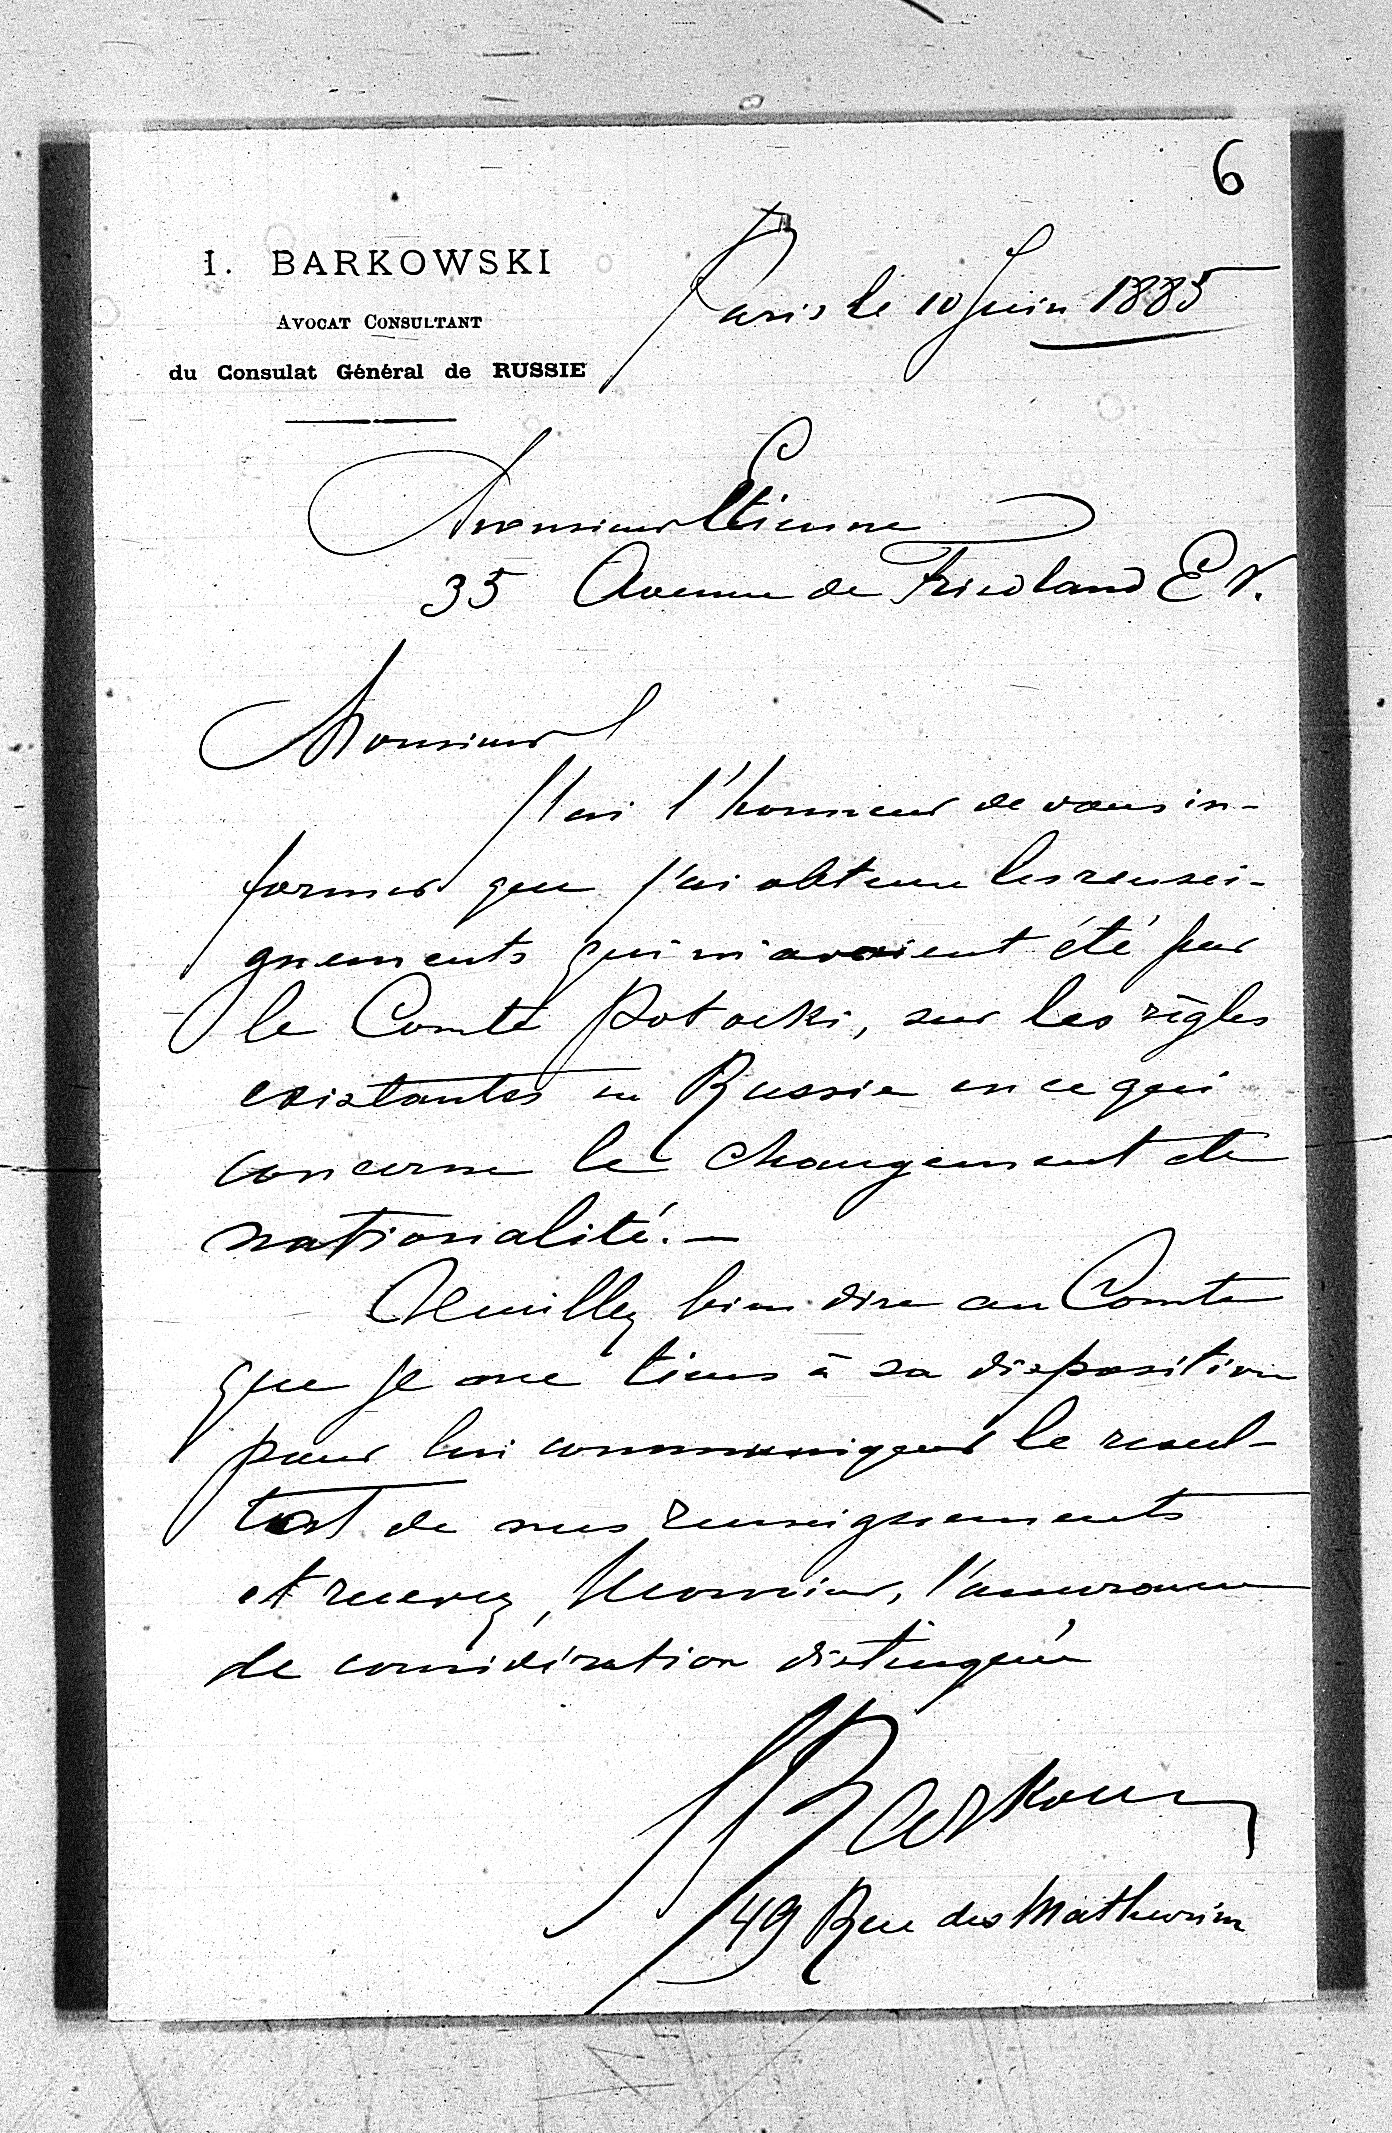 6
I. BARKOWSKI
AVOCAT CONSULTANT
du Consulat Général de RUSSIE
Paris le 10 Juin 1885
Monsieur Etienne
35 Avenue de Friedland E V.
Monsieur
J'ai l'honneur de vous in-
former que j'ai obtenu les rensei-
gnements qui m'avaient été par
le Comte Potocki, sur les règles
existantes en Russie en ce qui
concerne le changement de
nationalité.—
Veuillez bien dire au Comte
que je me tiens à sa disposition
pour lui communiquer le resul-
tat de mes renseignements
et recevez, Monsieur, l'assurance
de considération distinguée
Barkowski
49 Rue des Mathurins